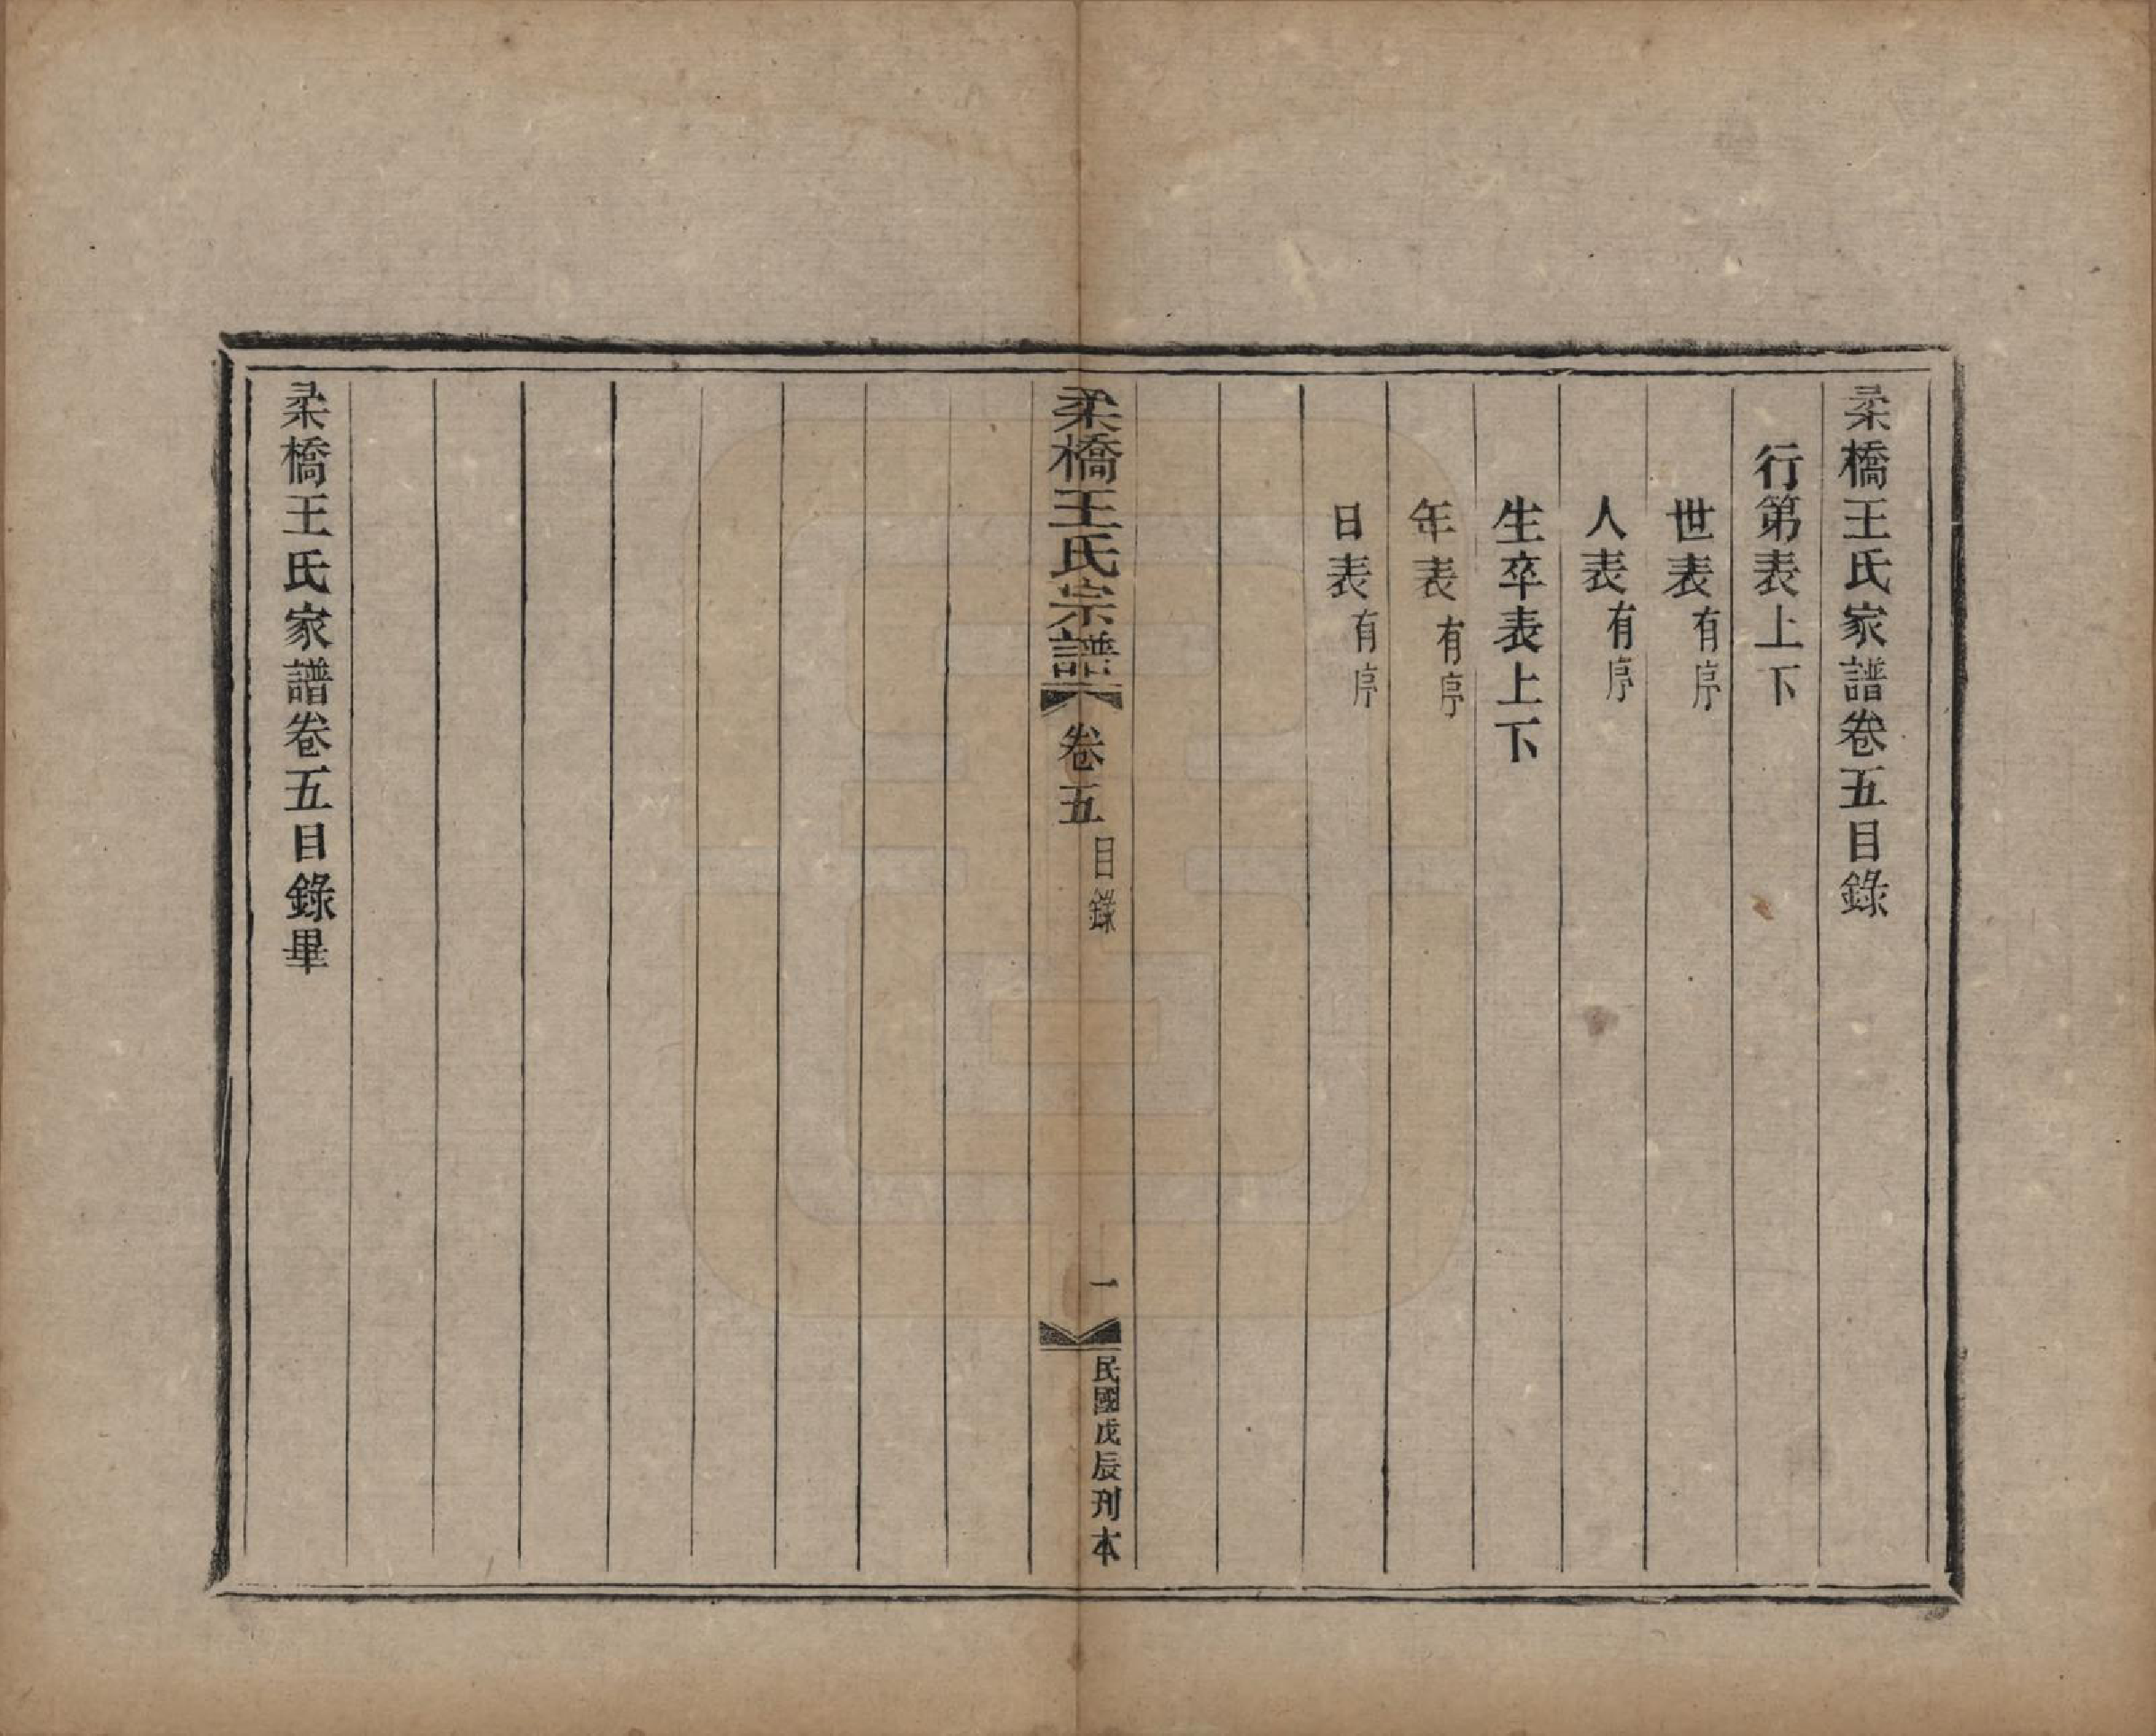 柔橋王氏家譜卷五目錄
行第表上下
世表有序
人表有序
生卒表上下
年表有序
日表有序
柔橋王氏宗譜
卷五
目錄
一
民國戊辰刊本
柔橋王氏家譜卷五目錄畢